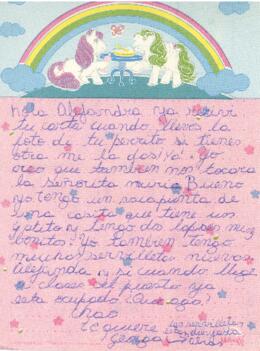 Hola Alejandra ya recivi
tu carta cuando lleves la
foto de tu perrito si tienes
otra me la das! Ya! Yo
creo que tambien nos tocara
la señorita muria Bueno
yo tengo un sacapunta de
una casita que tiene un
gatito y tengo dos lapises muy
bonitos! Yo tambien tengo
muchas servilletas nuevas
Alejandra y si cuando llege
a clases el puesto ya
esta ocupado Que ago?
Chao
te quiere
las servilletas